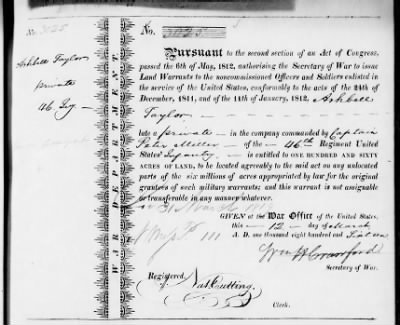 No. 3025
No. 3025
Ashbell Taylor
private
46 Inf
WAR DEPARTMENT.
Pursuant to the second section of an Act of Congress,
passed the 6th of May, 1812, authorising the Secretary of War to issue
Land Warrants to the noncommissioned Officers and Soldiers enlisted in
the service of the United States, conformably to the acts of the 24th of
December, 1811, and the 11th of January, 1812, Ashbell
Taylor
late a private in the company commanded by Captain
Peter Miller of the 46th Regiment United
States' Infantry is ENTITLED TO ONE HUNDRED AND SIXTY
ACRES OF LAND, to be located agreeably to the said act on any unlocated
parts of the six millions of acres appropriated by law for the original
grantees of such military warrants; and this warrant is not assignable
or transferable in any manner whatever.
GIVEN at the War Office of the United States,
this 12 day of March
A. D. one thousand eight hundred and
Wm H Crawford
Secretary of War.
Registered,
Nat Cutting
Clerk.